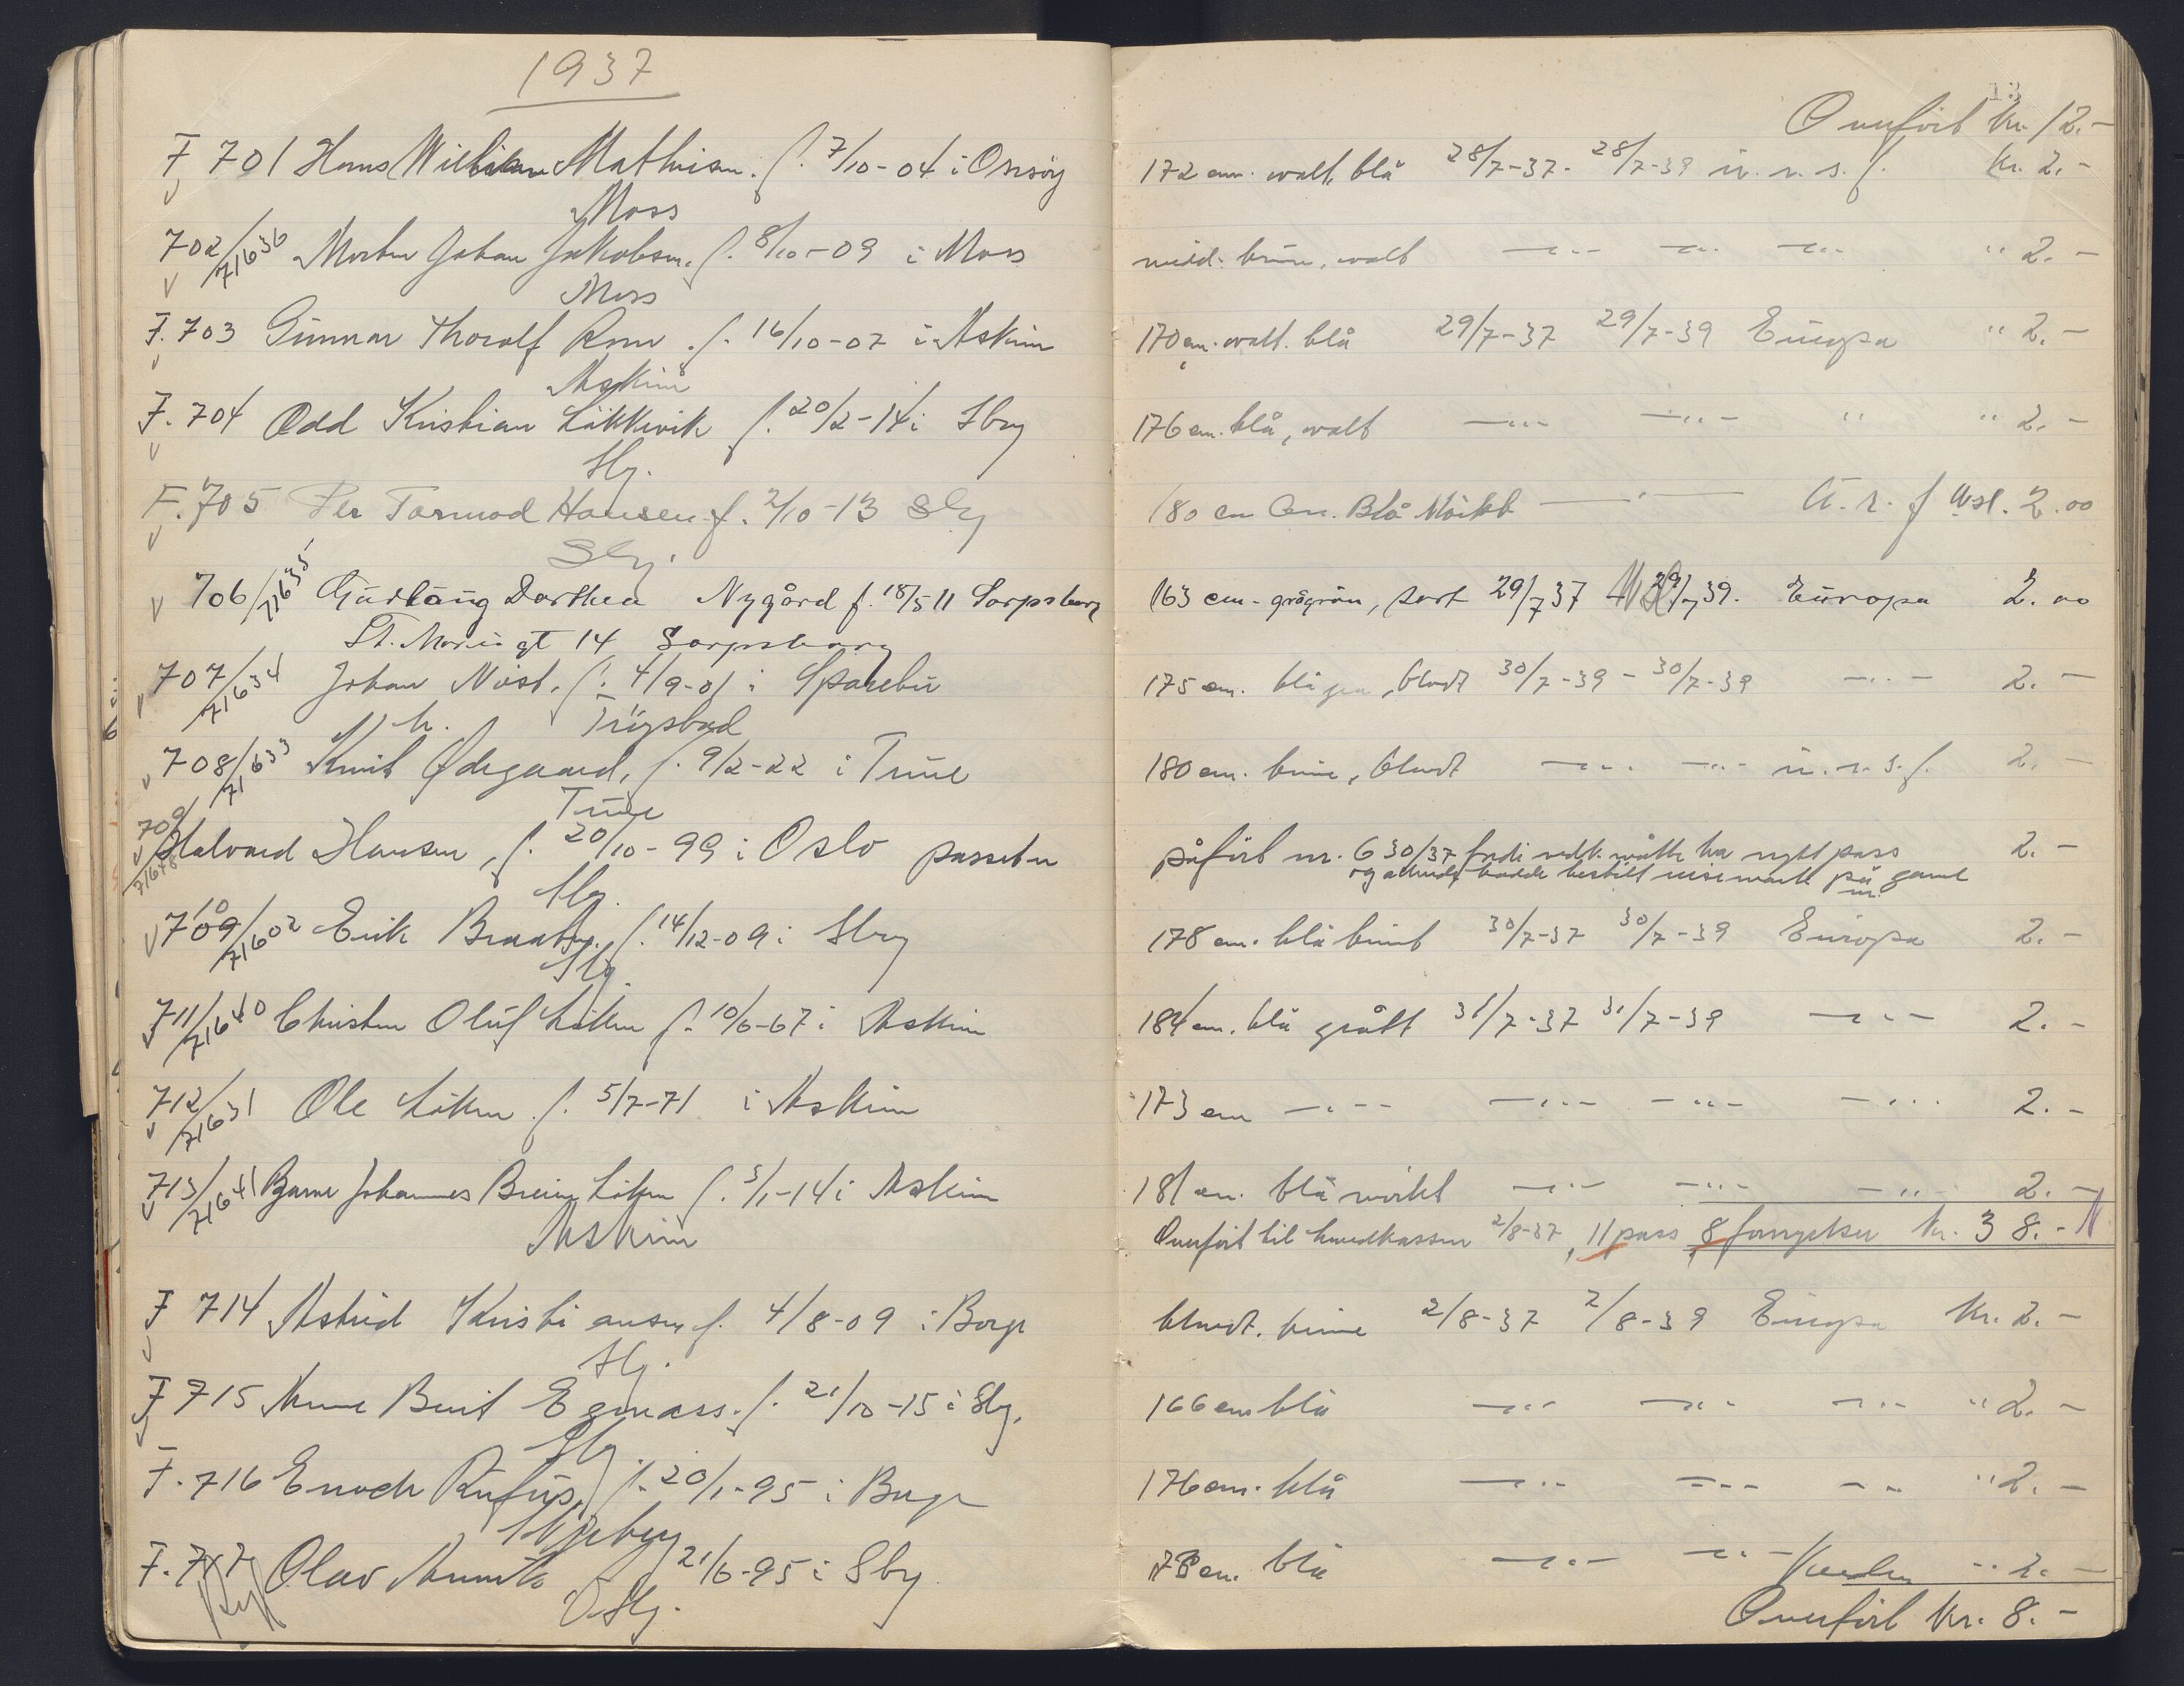 1937
13
Overført kr. 12.-
F 701 Hans William Mathisen. f. 7/10-04 i Onsøy 172 cm. svart, blå 28/7-37- 28/7-39 u. n. s. f. Kr. 2.-
Moss
702/71636 Johan Jakobsen. f. 8/10-09 i Moss midd. brun, svart -"- -"- -"- " 2.-
Moss
F. 703 Gunnar Thoralf f. 16/10-07 i Askim 170 cm. svart. blå 29/7-37 29/7-39 Europa " 2.-
Askim
F. 704 Odd Kristian Løkkevik f. 20/2-14 i Sbg 176 cm. blå, svart -"- -"- " " 2.-
Sbg.
F. 705 Per Tormod Hansen f. 2/10-13 Sbg 180 cm Blå Mörkt -"- U. n. f 2.00
Sbg.
706/71635 Dorthea Nygård f. 18/5 11 Sarpsborg 163 cm - grågrön, sort 29/7 37 29/7 39. Europa 2.00
St. Marie gt 14 Sarpsborg
707/71634 Johan f. 4/9-01 i Sparebu 175 cm. blå grå, blondt 30/7-39 - 30/7-39 -"- 2.-
Trøgstad
708/71633 Knut Ødegaard, f. 9/2-22 i Tune 180 cm. brune, blondt -"- -"- u. n. s. f. 2.-
Tune
709/71648 Halvard Hansen, f. 20/10-99 i Oslo passet er påført nr. 630/37 fordi vedk. måtte ha nytt pass 2.-
og allerede hadde bestilt på gaml nr.
Sbg.
710/71602 Erik Braaby. f. 14/12-09 i Sbg 178 cm. blå brunt 30/7-37 30/7-39 Europa 2.-
Sbg.
711/71640 Christen Oluf Løken f. 10/6-67 i Askim 184 cm. blå grått 31/7-37 31/7-39 -"- 2.-
712/71631 Ole Løken f. 5/7-71 i Askim 173 cm -"- -"- -"- -"- 2.-
713/71641 Bjarne Johannes Løken f. 3/1-14 i Askim 181 cm. blå mörkt -"- -"- -"- 2.-
Askim
Overført til hovedkassen 2/8-37, 11 pass 8 fornyelser kr. 38.-
F 714 Astrid Kristiansen f. 4/8-09 i Borge blondt. brune 2/8-37 2/8-39 Europa Kr. 2.-
Sbg.
F 715 Berit Egenæss. f. 21/10-15 i Sbg. 166 cm blå -"- -"- -"- " 2.-
Sbg
F. 716 Enoch Rufus, f. 20/1-95 i Borge 176 cm. blå -"- -"- -"- " 2.-
Skjeberg
F. 717 Olav f. 21/6-95 i Sbg 178 cm. blå -"- -"- Verden " 2.-
Sbg.
Overført Kr. 8.-